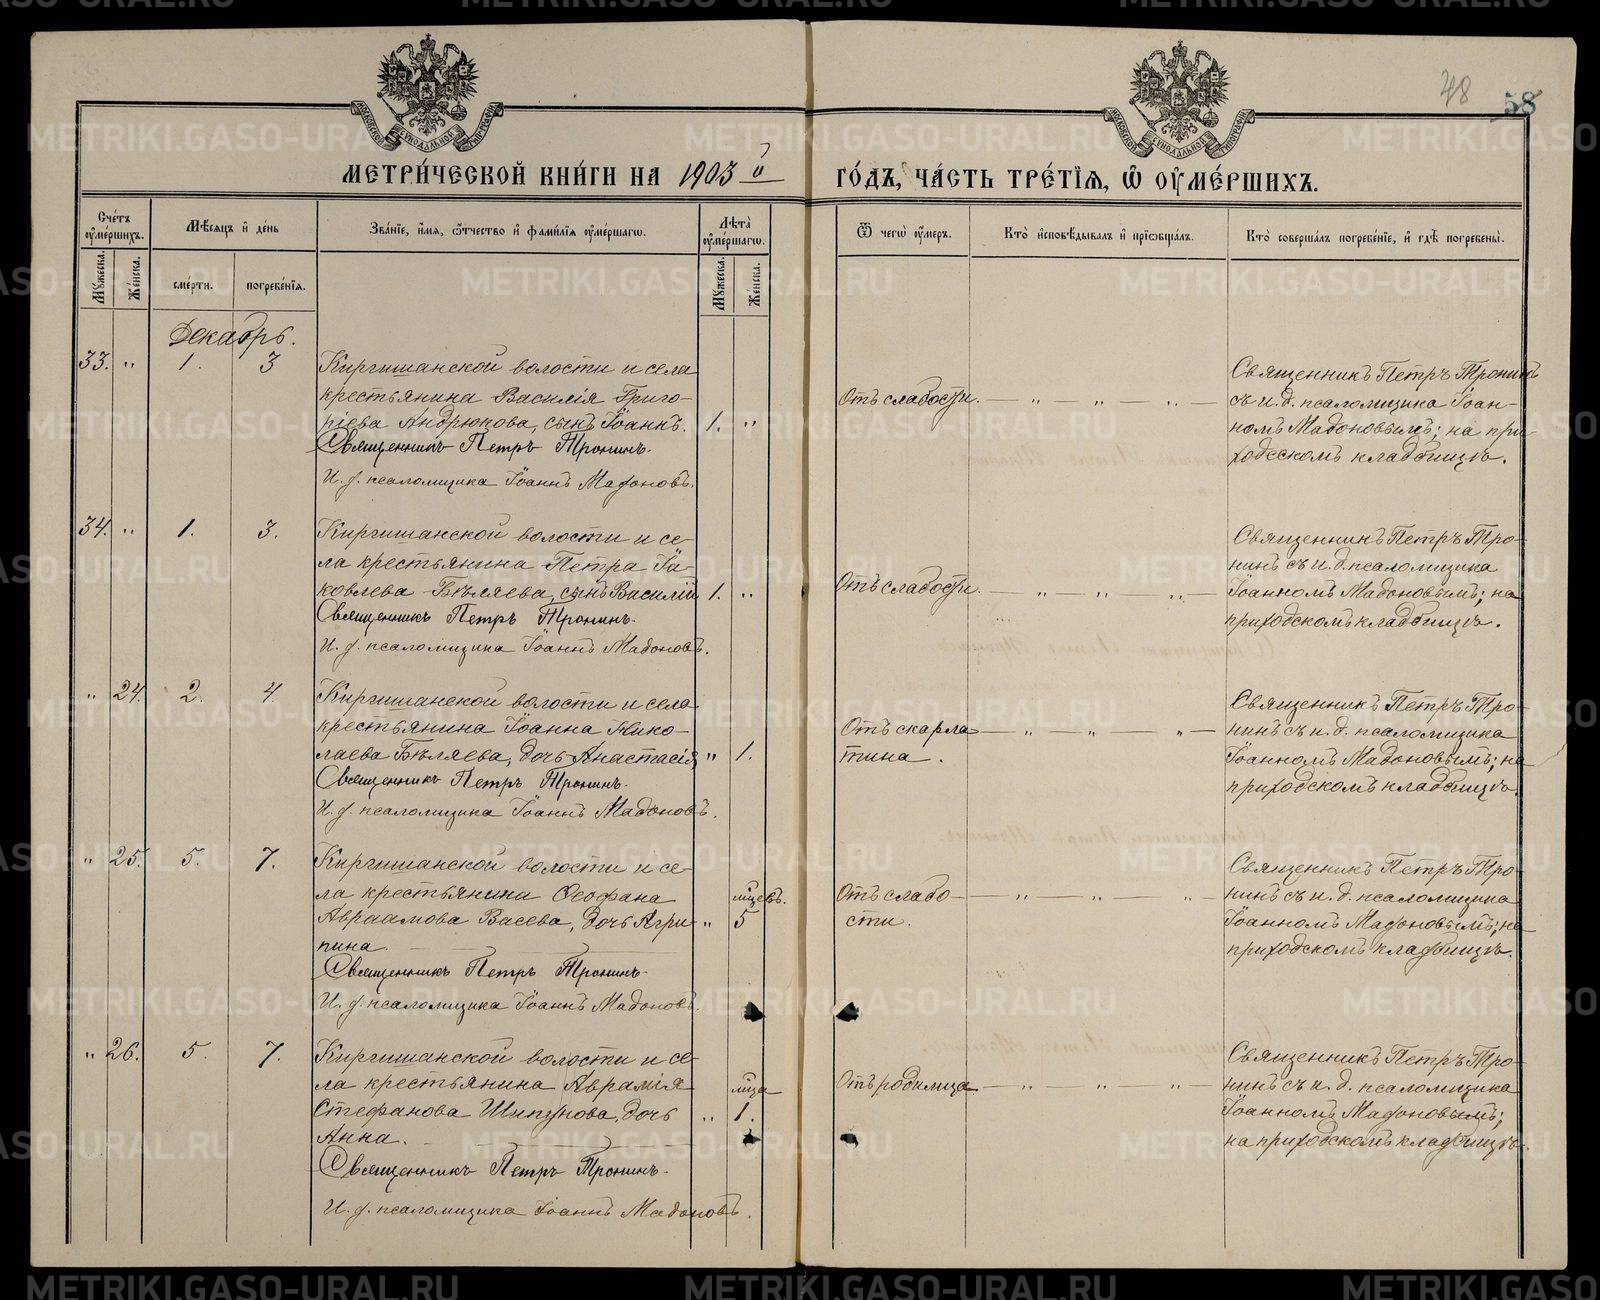 48
58
МЕТРИ́ЧЕСКОЙ КНИ́ГИ НА 1903 й
ГО́ДЪ, ЧА́СТЬ ТРЕ́ТІѦ, Ѽ ОУ҆МЕ́РШИХЪ.
Сче́тъ оу҆ме́ршихъ.
Мѣ́сяцъ и҆ де́нь
Зва́нїе, и҆́мя, ѻ҆́тчество и҆ фами́лїя оу҆ме́ршагѡ.
Лѣ́та оу҆ме́ршагѡ.
Ѿ чегѡ̀ оу҆́меръ.
Кто̀ и҆сповѣ́дывалъ и҆ прїѡбща́лъ.
Кто̀ соверша́лъ погребе́нїе, и҆ гдѣ̀ погребены̀.
Му́жеска.
Же́нска.
сме́рти.
погребе́нїя.
Му́жеска.
Же́нска.
Декабрь.
33. " 1. 3
Киргишанской волости и села
крестьянина Василія Григо-
ріева Андрюкова, сынъ Іоаннъ. 1. "
Священникъ Петръ Тронинъ.
И. д. псаломщика Іоаннъ Мадоновъ.
Отъ слабости. — " — " — " —
Священникъ Петръ Тронинъ
съ и. д. псаломщика Іоан-
номъ Мадоновымъ; на при-
ходсскомъ кладбищѣ.
34. " 1. 3.
Киргишанской волости и се-
ла крестьянина Петра Іа-
ковлева Бѣляева, сынъ Василій 1. "
Священникъ Петръ Тронинъ.
И. д. псаломщика Іоаннъ Мадоновъ.
Отъ слабости. — " — " — " —
Священникъ Петръ Тро-
нинъ съ и. д. псаломщика
Іоанномъ Мадоновымъ; на
приходскомъ кладбищѣ.
" 24. 2. 4.
Киргишанской волости и села
крестьянина Іоанна Нико-
лаева Бѣляева, дочь Анастасія, " 1.
Священникъ Петръ Тронинъ.
И. д. псаломщика Іоаннъ Мадоновъ.
Отъ скарла-
тина.
— " — " — " —
Священникъ Петръ Тро-
нинъ съ и. д. псаломщика
Іоанномъ Мадоновымъ; на
приходскомъ кладбищѣ.
" 25. 5. 7.
Киргишанской волости и се-
ла крестьянина Ѳеофана
Авраамова Васева, дочь Агри- " 5
пина.
Священникъ Петръ Тронинъ.
И. д. псаломщика Іоаннъ Мадоновъ.
Отъ слабо-
сти.
— " — " — " —
Священникъ Петръ Тро-
нинъ съ и. д. псаломщика
Іоанномъ Мадоновымъ; на
приходскомъ кладбищѣ.
" 26. 5. 7.
Киргишанской волости и се-
ла крестьянина Аврамія
Стефанова Шипунова, дочь " 1.
Анна.
Священникъ Петръ Тронинъ.
И. д. псаломщика Іоаннъ Мадоновъ.
Отъ родимца. — " — " — " —
Священникъ Петръ Тро-
нинъ съ и. д. псаломщика
Іоанномъ Мадоновымъ;
на приходскомъ кладбищѣ.
METRIKI.GASO-URAL.RU